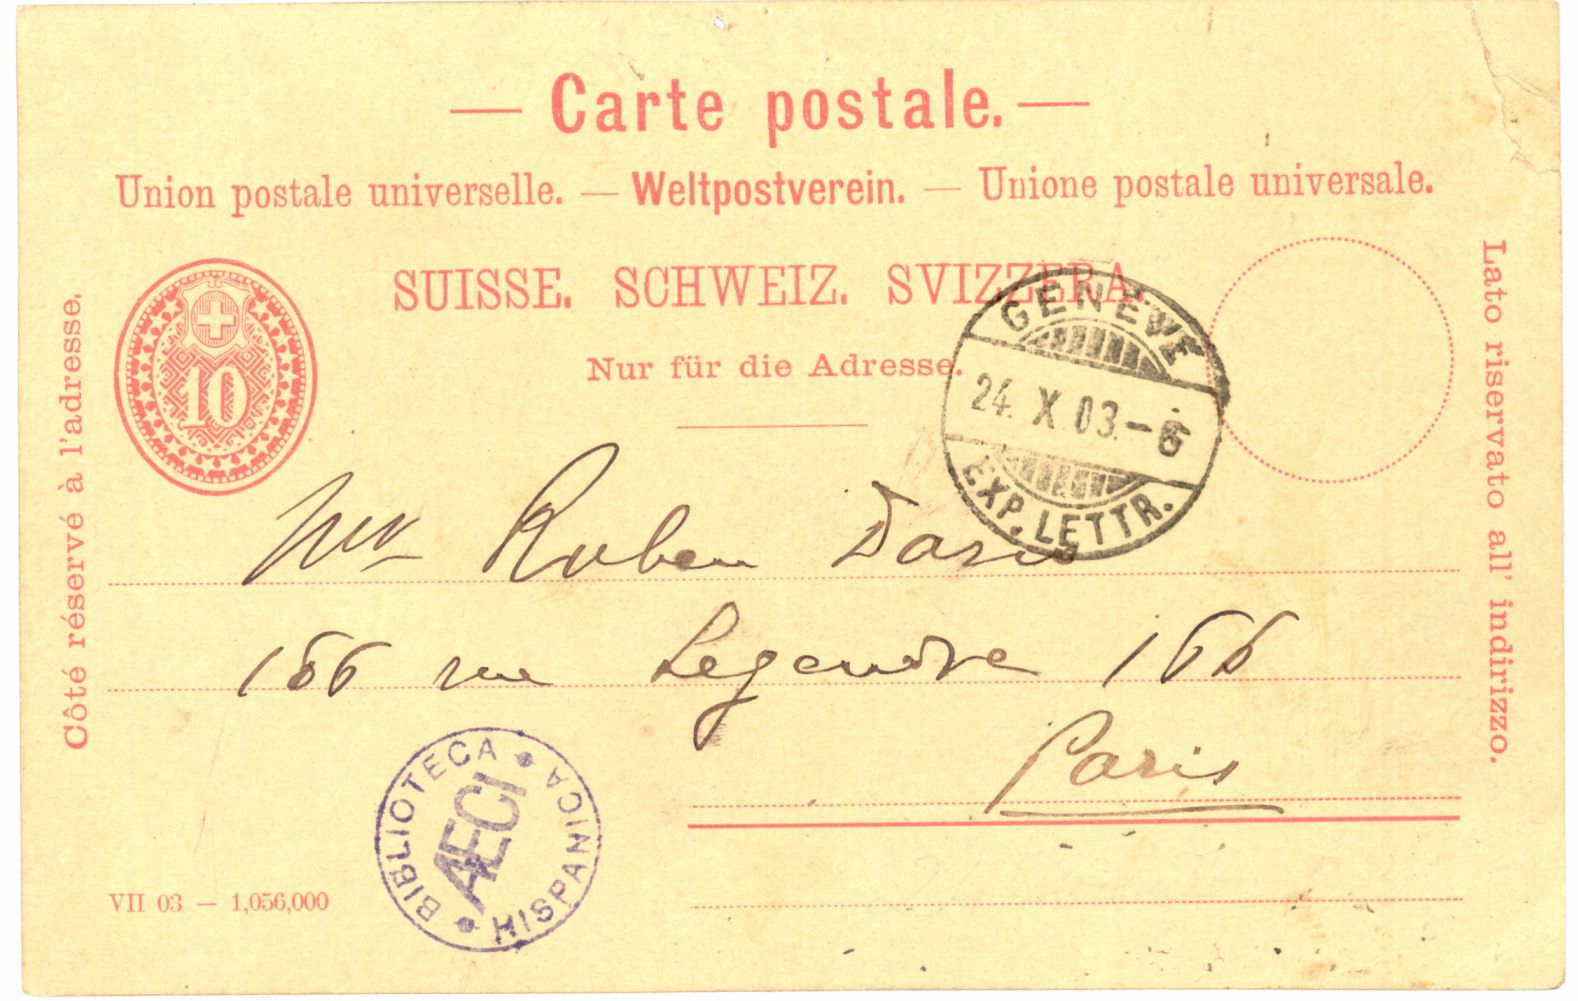 — Carte postale. —
Union postale universelle. — Weltpostverein. — Unione postale universale.
SUISSE. SCHWEIZ. SVIZZERA.
Nur für die Adresse.
Côté réservé à l'adresse.
Lato riservato all' indirizzo.
10
GENÈVE
24. X. 03. –
EXP. LETTR.
Ruben Dario
166 rue Legendre 166
Paris
BIBLIOTECA HISPANICA
AECI
VII 03 — 1,056,000